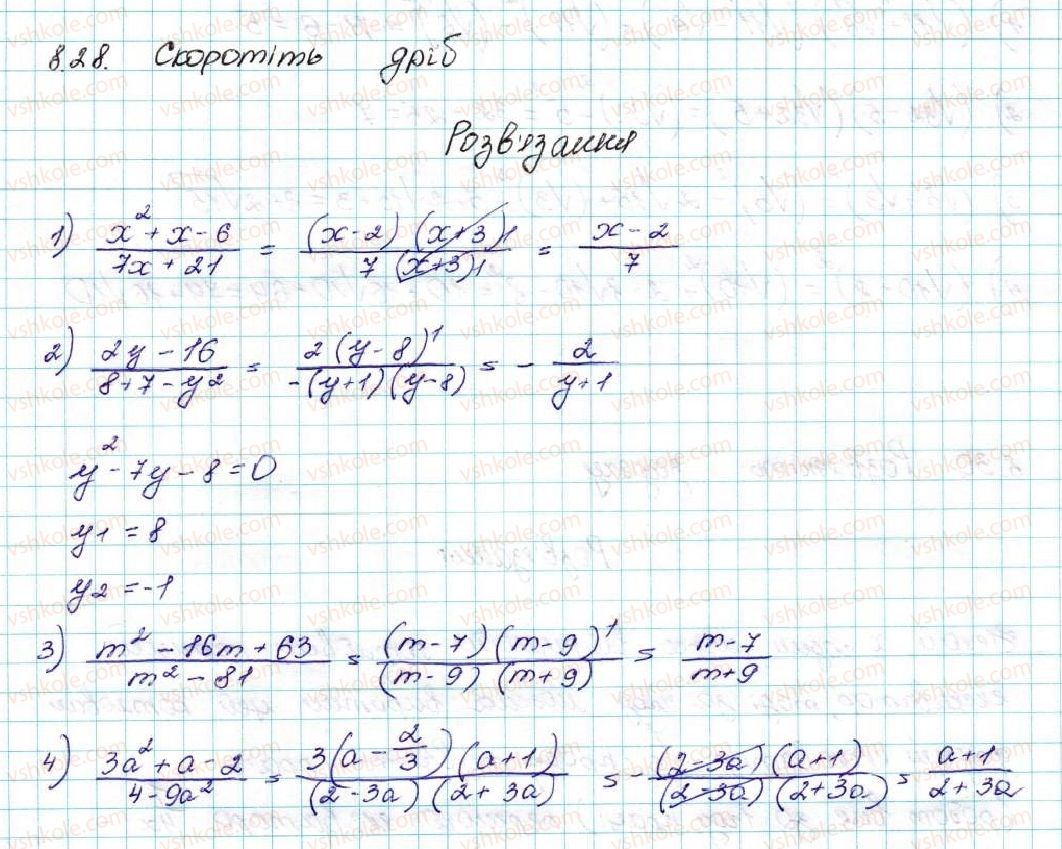 8.28. Скоротіть дріб
Розв'язання
1) \frac{x^2+x-6}{7x+21} = \frac{(x-2)(x+3)1}{7(x+3)1} = \frac{x-2}{7}
2) \frac{2y-16}{8+7-y^2} = \frac{2(y-8)^1}{-(y+1)(y-8)} = -\frac{2}{y+1}
y^2-7y-8=0
y1 = 8
y2 = -1
3) \frac{m^2-16m+63}{m^2-81} = \frac{(m-7)(m-9)^1}{(m-9)(m+9)} = \frac{m-7}{m+9}
4) \frac{3a^2+a-2}{4-9a^2} = \frac{3(a-\frac{2}{3})(a+1)}{(2-3a)(2+3a)} = -\frac{(2-3a)(a+1)}{(2-3a)(2+3a)} = \frac{a+1}{2+3a}